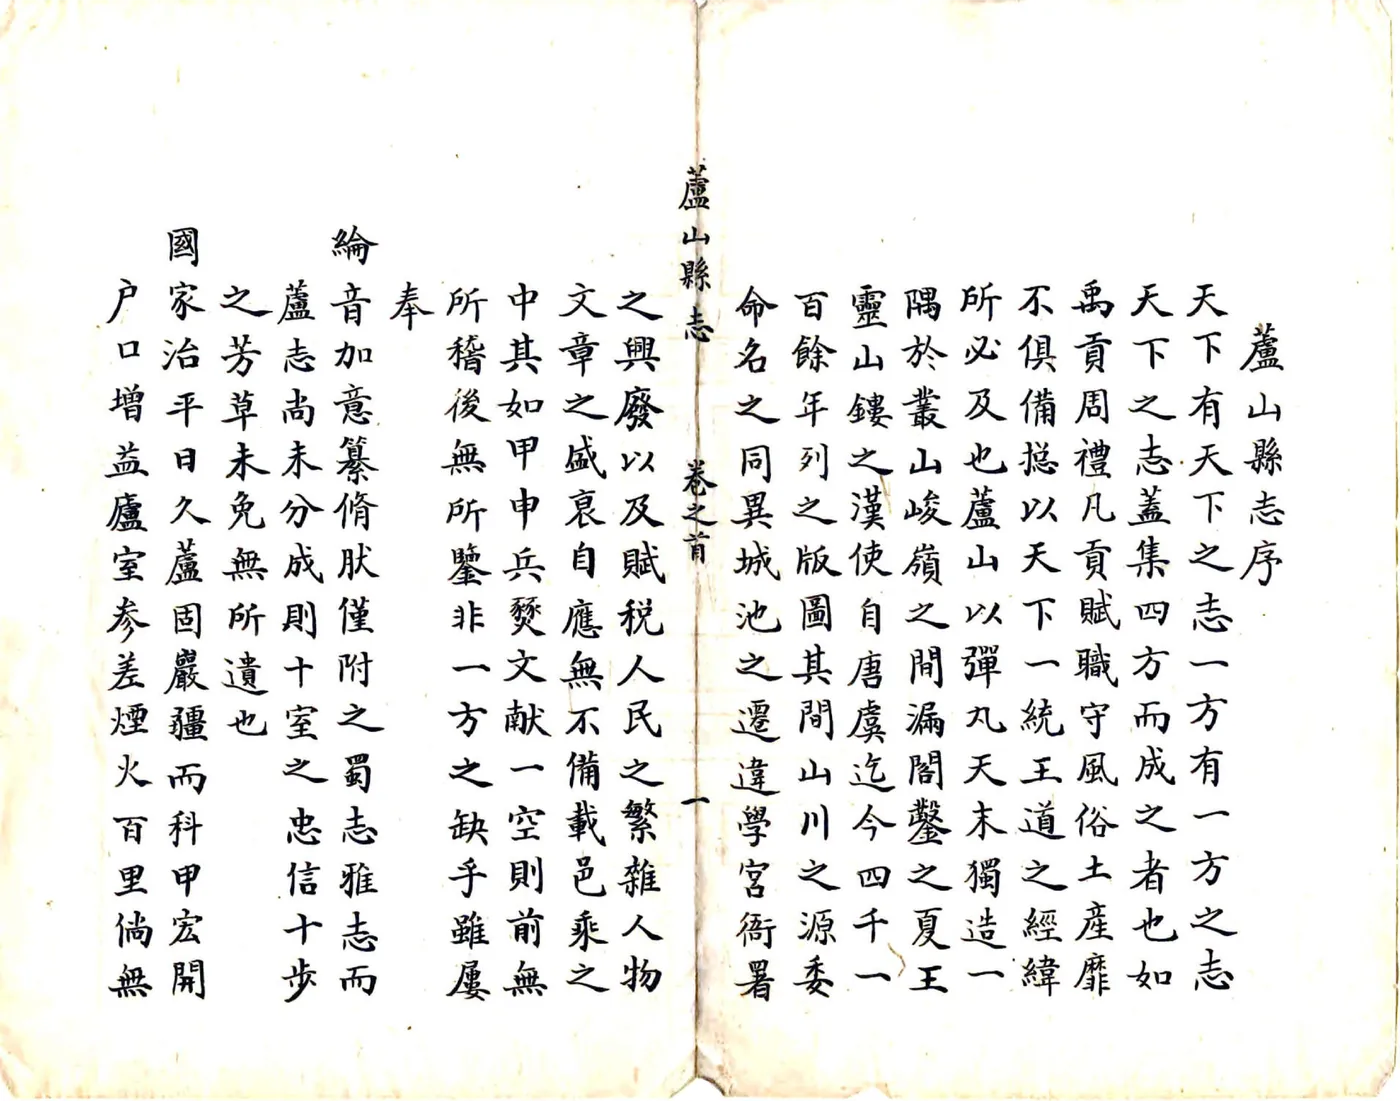 蘆山縣志序
天下有天下之志一方有一方之志
天下之志蓋集四方而成之者也如
禹貢周禮凡貢賦職守風俗土産靡
不俱備揔以天下一統王道之經緯
所必及也蘆山以彈丸天末獨造一
隅於叢山峻嶺之間漏閣鑿之夏王
靈山鏤之漢使自唐虞迄今四千一
百餘年列之版圖其間山川之源委
命名之同異城池之遷違學宮衙署
蘆山縣志 卷之首 一
之興廢以及賦税人民之繁雜人物
文章之盛衰自應無不備載邑乘之
中其如甲申兵燹文献一空則前無
所稽後無所鑒非一方之缺乎雖屢
奉
綸音加意纂脩肰僅附之蜀志雅志而
蘆志尚未分成則十室之忠信十步
之芳草未免無所遺也
國家治平日久蘆固巖疆而科甲宏開
户口增益廬室参差煙火百里倘無